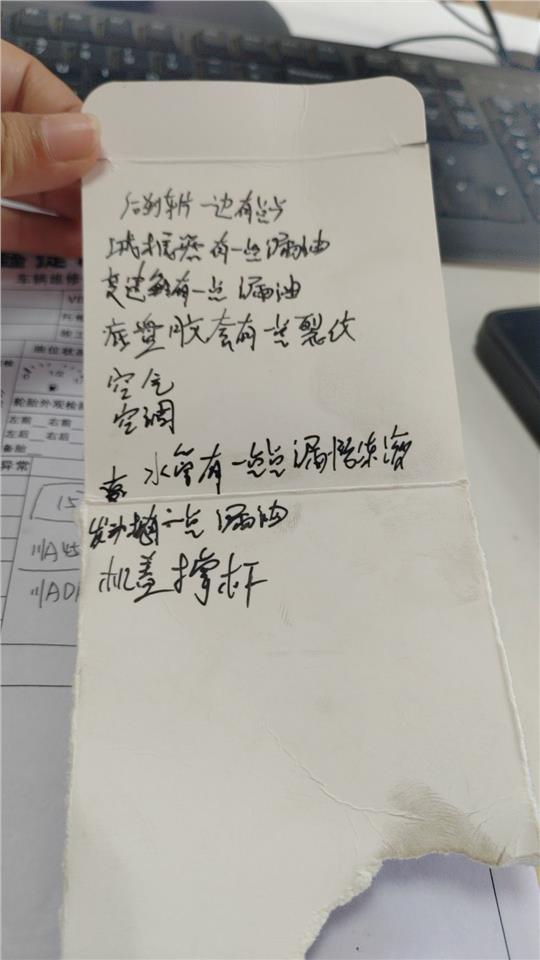 后刹车片一边有点少
机感有一点漏油
变速箱有一点漏油
底盘胶套有一点裂纹
空气
空调
水管有一点点漏防冻液
发动机一点漏油
机盖撑杆
车辆维修
油位状
轮胎外观检
左前 右前
左后 右后
备胎
异常
15